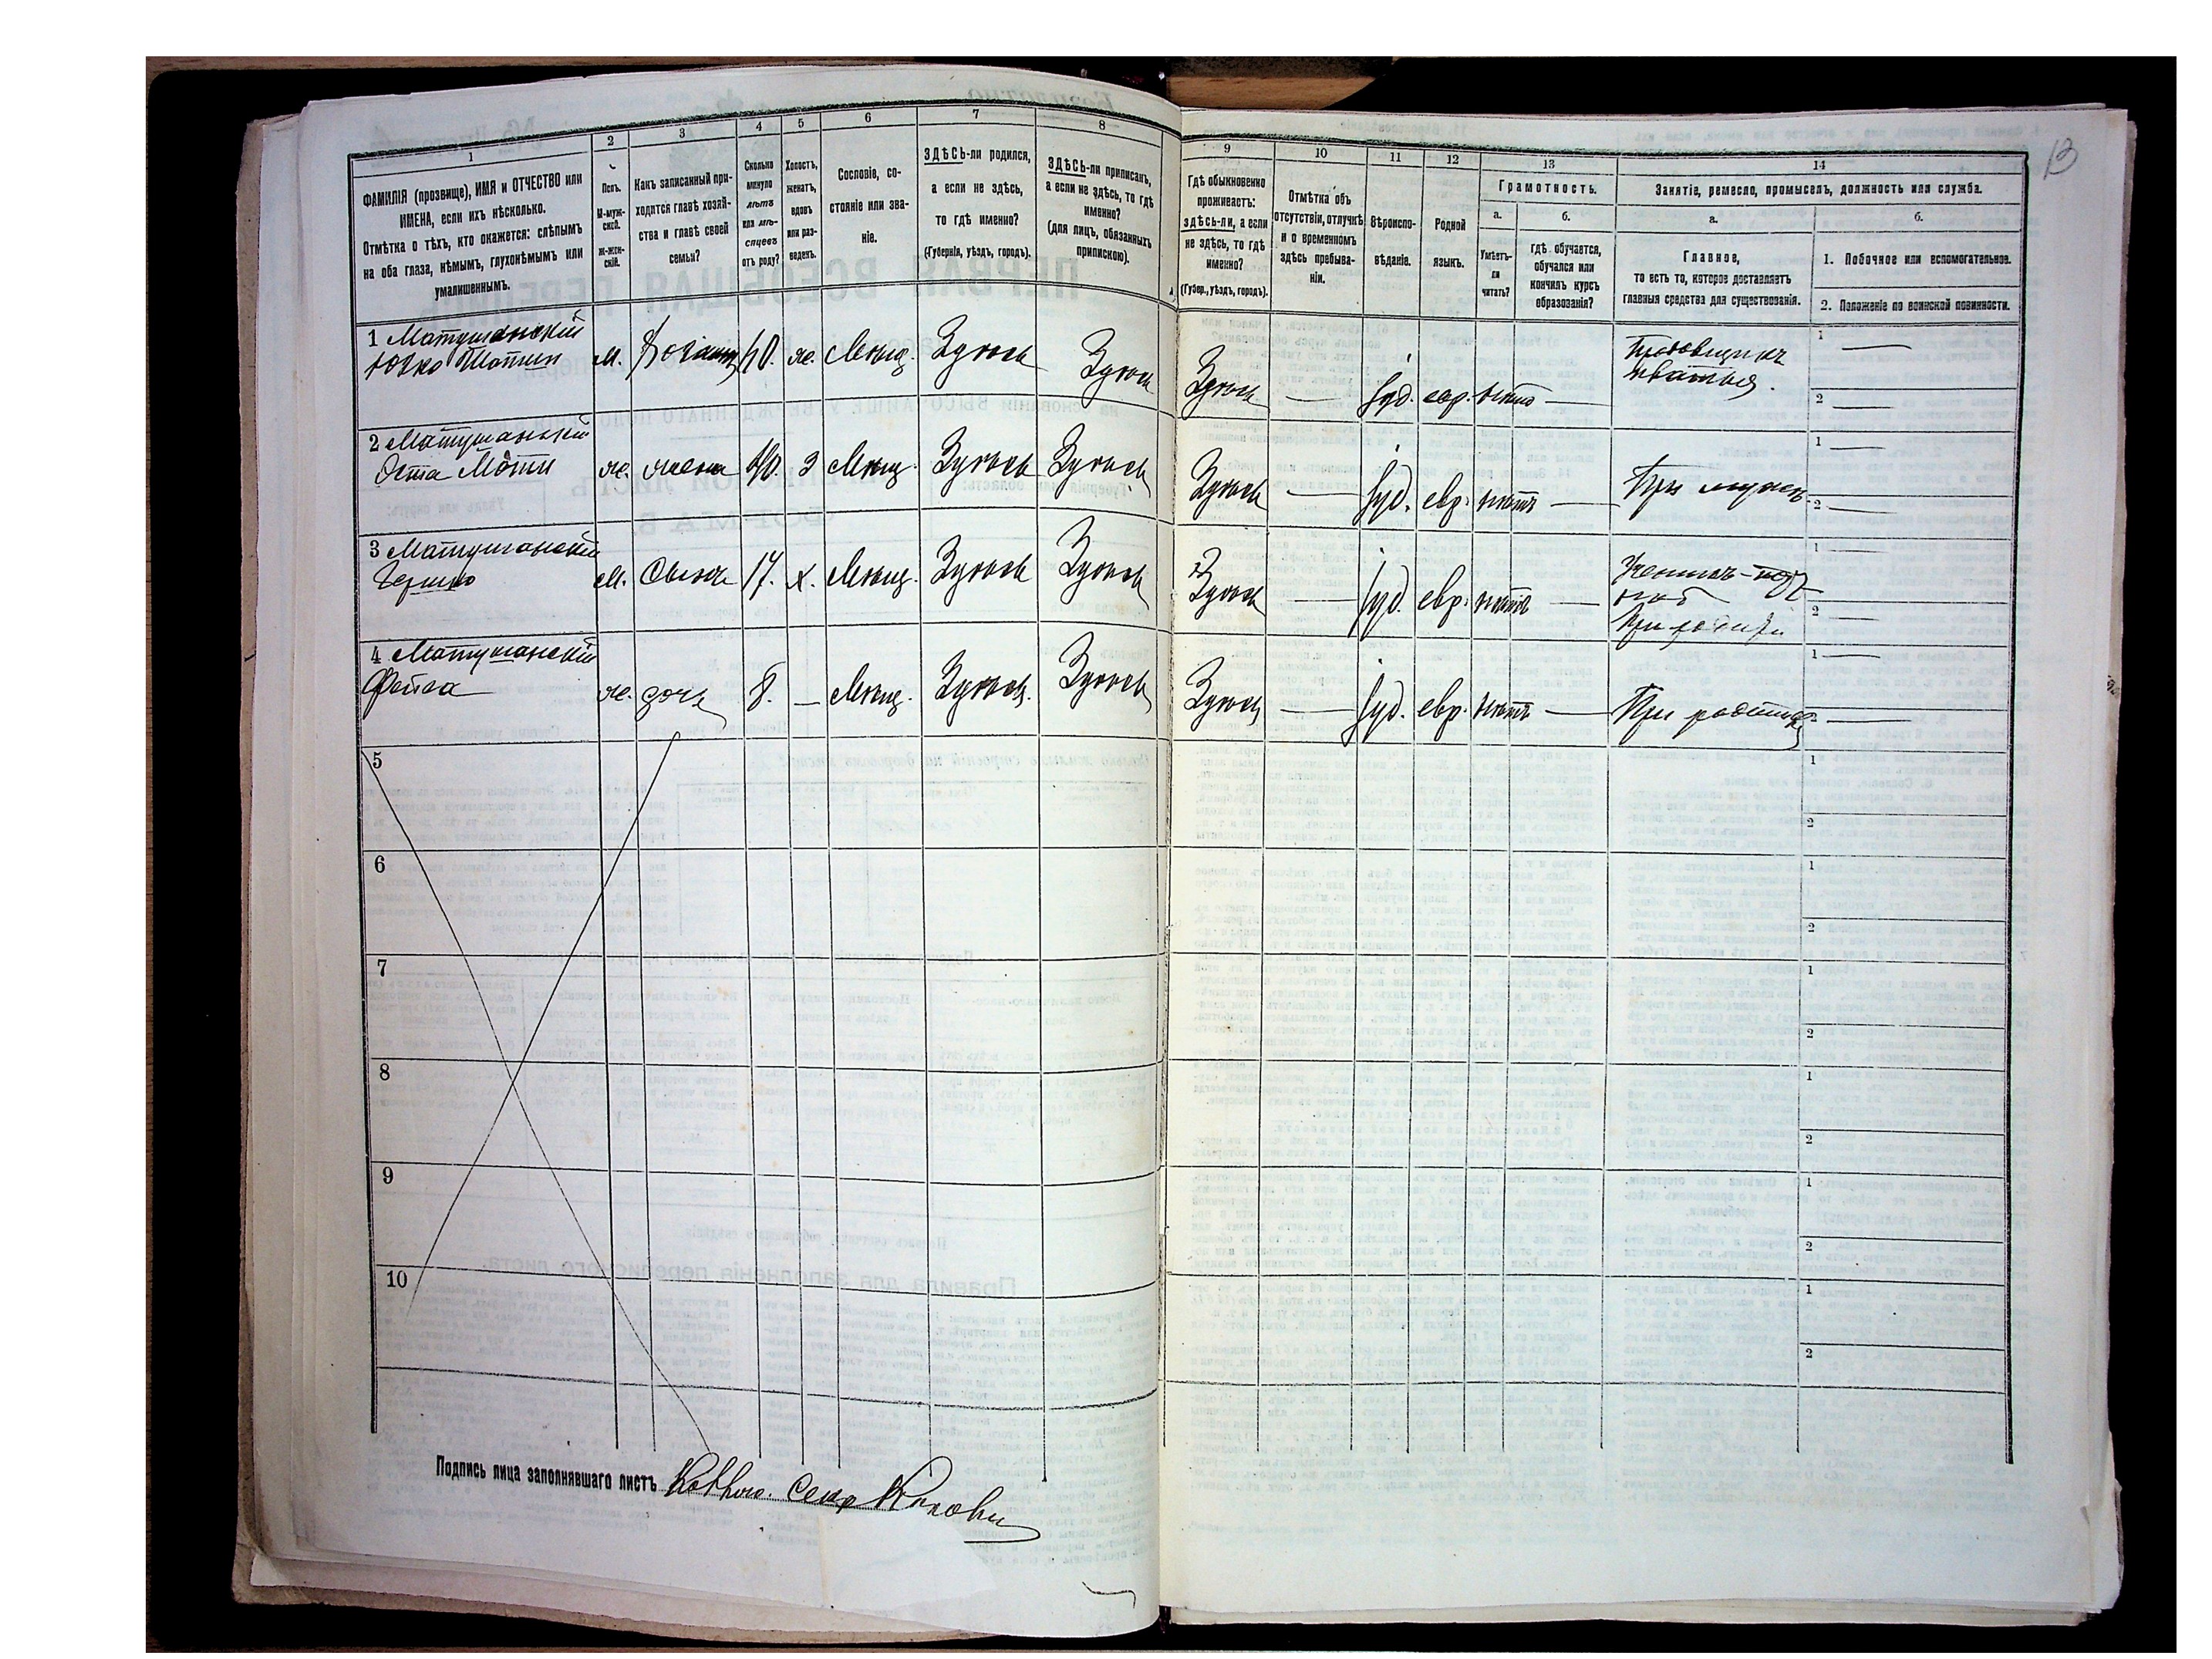 13
1 2 3 4 5 6 7 8 9 10 11 12 13 14
ФАМИЛІЯ (прозвище), ИМЯ и ОТЧЕСТВО или
ИМЕНА, если ихъ нѣсколько.
Отмѣтка о тѣхъ, кто окажется: слѣпымъ
на оба глаза, нѣмымъ, глухонѣмымъ или
умалишеннымъ.
Полъ.
М-муж-
ской.
Ж-жен-
скій.
Какъ записанный при-
ходится главѣ хозяй-
ства и главѣ своей
семьи?
Сколько
минуло
лѣтъ
или мѣ-
сяцевъ
отъ роду?
Холостъ,
женатъ,
вдовъ
или раз-
веденъ.
Сословіе, со-
стояніе или зва-
ніе.
ЗДѢСЬ-ли родился,
а если не здѣсь,
то гдѣ именно?
(Губернія, уѣздъ, городъ).
ЗДѢСЬ-ли приписанъ,
а если не здѣсь, то гдѣ
именно?
(для лицъ, обязанныхъ
припискою).
Гдѣ обыкновенно
проживаетъ:
здѣсь-ли, а если
не здѣсь, то гдѣ
именно?
(Губер., уѣздъ, городъ).
Отмѣтка объ
отсутствіи, отлучкѣ
и о временномъ
здѣсь пребыва-
ніи.
Вѣроиспо-
вѣданіе.
Родной
языкъ.
Грамотность.
а. б.
Умѣетъ-
ли
читать?
гдѣ обучается,
обучался или
кончилъ курсъ
образованія?
Занятіе, ремесло, промыселъ, должность или служба.
а. б.
Главное,
то есть то, которое доставляетъ
главныя средства для существованія.
1. Побочное или вспомогательное.
2. Положеніе по воинской повинности.
1 Матушанскій
м. 40. ж. Мѣщ. Здѣсь Здѣсь Здѣсь — Іуд. евр. —
1 —
2 —
2 Матушанскій
ж. жена 40. З Мѣщ. Здѣсь Здѣсь Здѣсь — Іуд. евр. нѣтъ — При мужѣ
1 —
2 —
3 Матушанскій
Гершко м. Сынъ 17. х. Мѣщ. Здѣсь Здѣсь Здѣсь — Іуд. евр. нѣтъ —
1 —
2 —
4 Матушанскій
Фейга ж. дочь 8. — Мѣщ. Здѣсь. Здѣсь Здѣсь — Іуд. евр. нѣтъ — При
1 —
2 —
5 1
2
6 1
2
7 1
2
8 1
2
9 1
2
10 1
2
Подпись лица заполнявшаго листъ